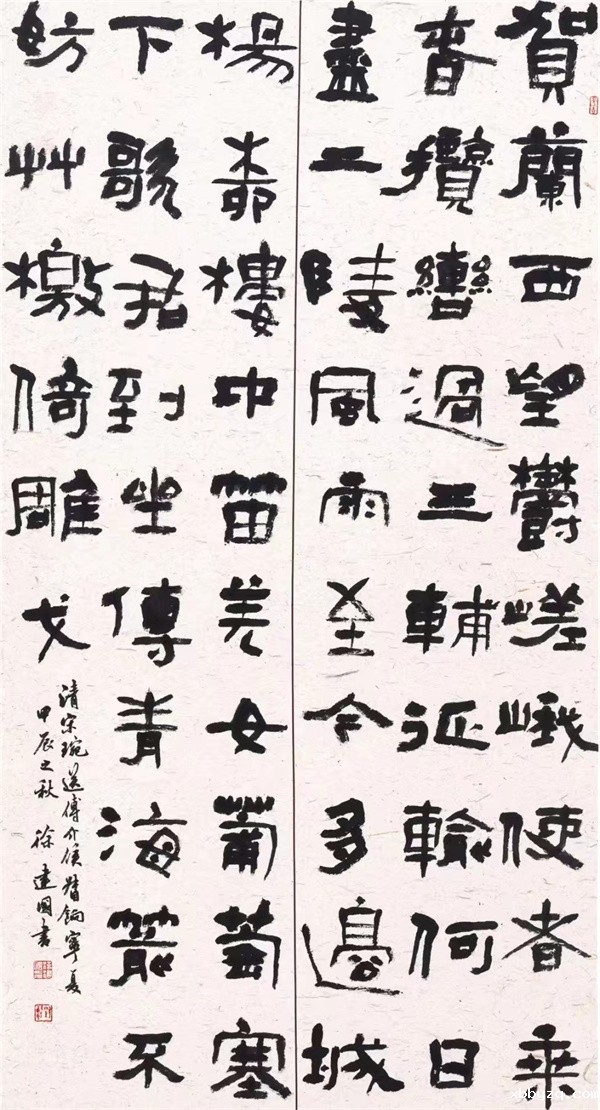 賀蘭西望鬱嵯峨使者乘
春攬轡過三輔征輸何日
盡二陵風雨至今多邊城
楊柳樓中笛羌女葡萄塞
下歌君到坐傳青海箭不
妨艸檄倚雕戈
清宋琬送傅介侯督餉寧夏
甲辰之秋 徐建國書